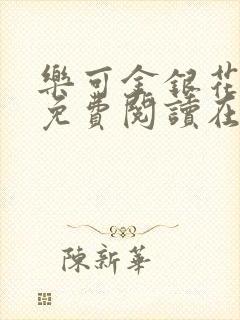 樂可金銀花
免費閱讀在
陳新華